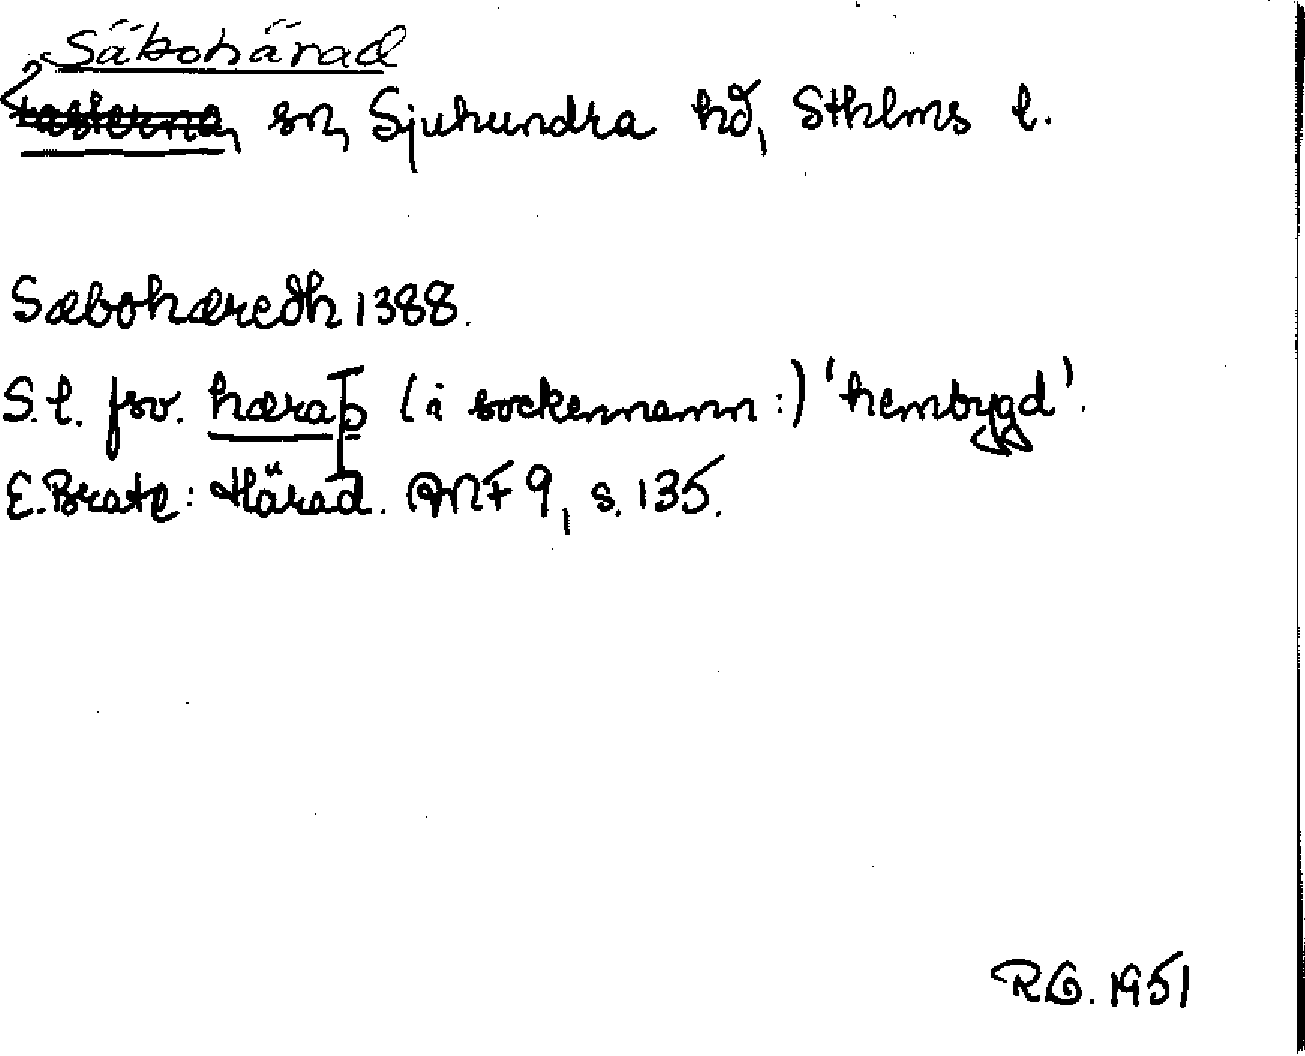 Säbohärad
sn, Sjuhundra hd, Sthlms l.
Sæbohæredh 1388.
S.l. fsv. hæraþ (i sockennamn:) 'hembygd'.
E. Brate: Härad. ANF 9, s. 135.
RG. 1951